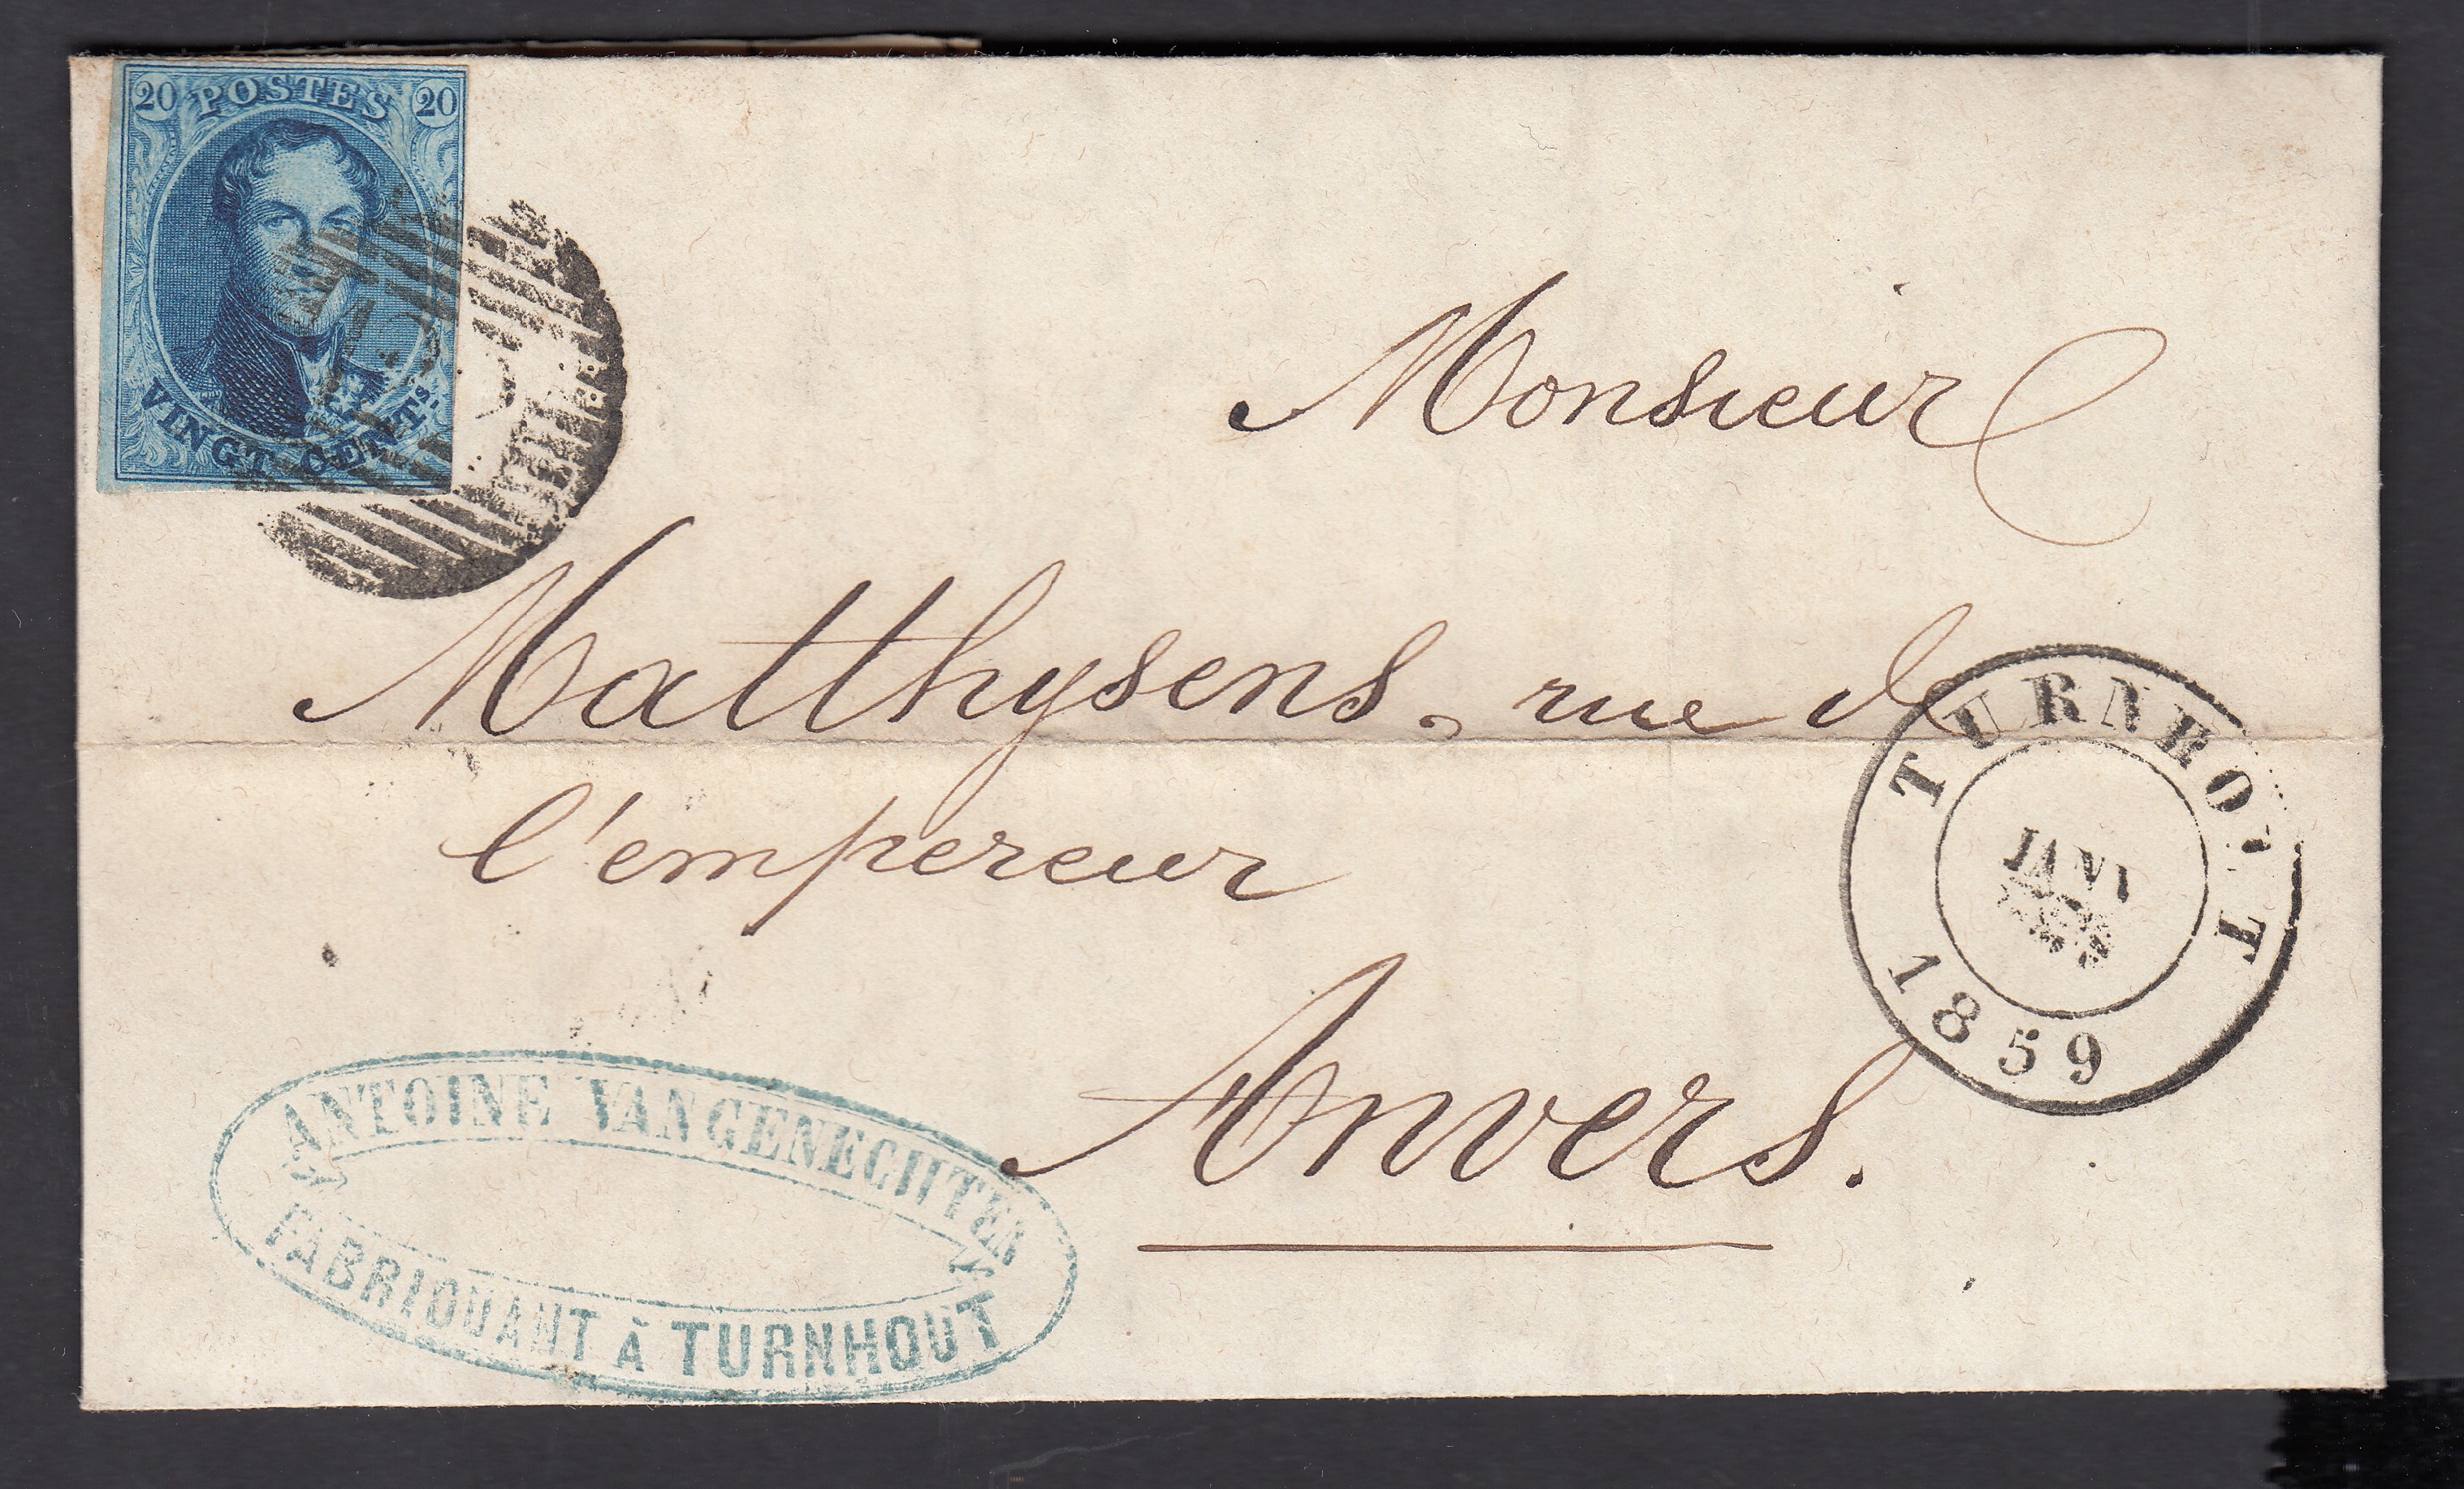 20 POSTES 20
VINGT CENTS.
Monsieur
Matthysens, rue de
l'empereur
Anvers.
TURNHOUT
1859
ANTOINE VAN GENECHTEN
FABRIQUANT À TURNHOUT